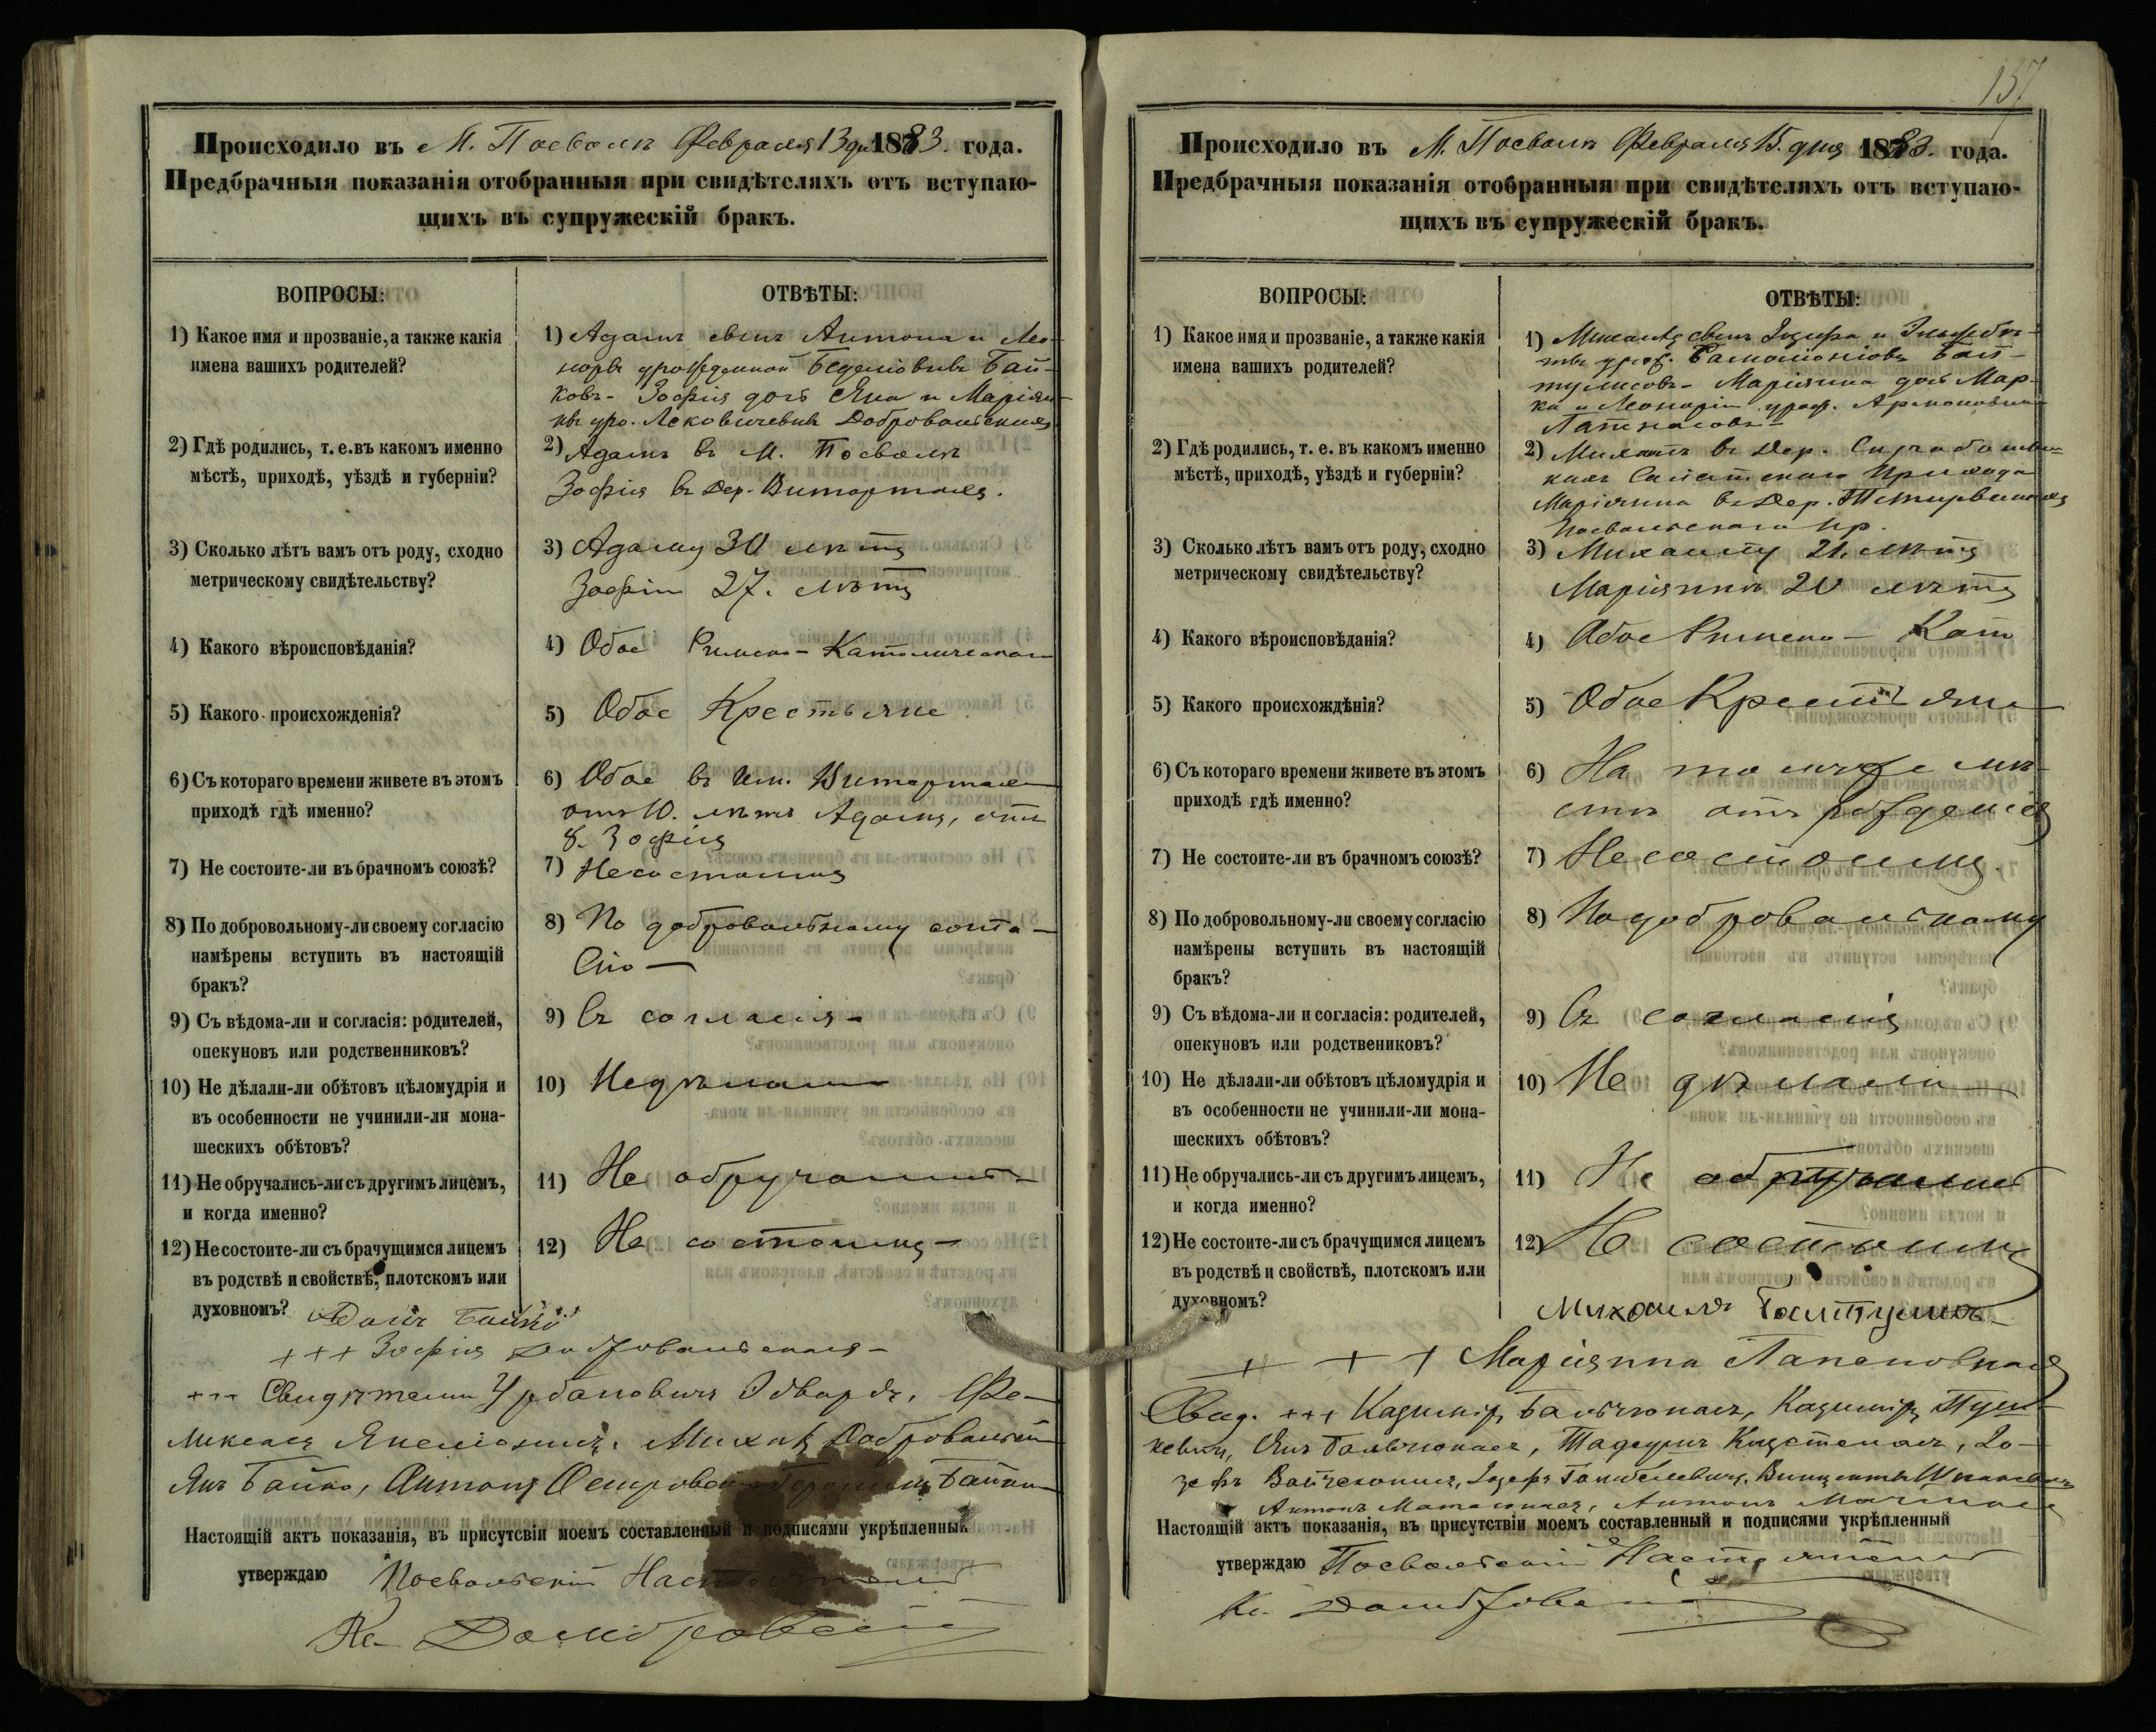 Происходило въ М. Посволѣ Февраля 13 дн 1883. года.
Предбрачныя показанія отобранныя при свидѣтеляхъ отъ вступаю-
щихъ въ супружескій бракъ.
ВОПРОСЫ:
ОТВѢТЫ:
1) Какое имя и прозваніе, а также какія
имена вашихъ родителей?
1) Адамъ сынъ Антона и Лео-
норы урожденной Бай-
ковъ - Зофія дочь Яна и Маріян-
ны уро. Добровольскихъ
2) Гдѣ родились, т. е. въ какомъ именно
мѣстѣ, приходѣ, уѣздѣ и губерніи?
2) Адамъ въ М. Посволѣ
Зофія въ Дер. Витартахъ.
3) Сколько лѣтъ вамъ отъ роду, сходно
метрическому свидѣтельству?
3) Адаму 30 лѣтъ
Зофіи 27. лѣтъ
4) Какого вѣроисповѣданія?
4) Обое Римско-Католическаго
5) Какого происхожденія?
5) Обое Крестьяне
6) Съ котораго времени живете въ этомъ
приходѣ гдѣ именно?
6) Обое въ Им.
отъ 10. лѣтъ Адамъ, отъ
8. Зофія
7) Не состоите-ли въ брачномъ союзѣ?
7) Несостоимъ
8) По добровольному-ли своему согласію
намѣрены вступить въ настоящій
бракъ?
8) По добровольному согла-
сію
9) Съ вѣдома-ли и согласія: родителей,
опекуновъ или родственниковъ?
9) Съ согласія -
10) Не дѣлали-ли обѣтовъ цѣломудрія и
въ особенности не учинили-ли мона-
шескихъ обѣтовъ?
10) Недѣлали
11) Не обручались-ли съ другимъ лицемъ,
и когда именно?
11) Не обручались
12) Не состоите-ли съ брачущимся лицемъ
въ родствѣ и свойствѣ, плотскомъ или
духовномъ?
12) Не состоимъ -
Адамъ Байко
+++ Зофія Добровольская -
+++ Свидѣтели Урбановичъ Эдвардъ, Фе-
Михаилъ Добровольскій
Янъ Байко, Антонъ Байко
Настоящій актъ показанія, въ присутсвіи моемъ составленный и подписями укрѣпленный
утверждаю Посвольскій Настоятель
Кс. Домбровскій
137
Происходило въ М. Посволѣ Февраля 15. дня 1883. года.
Предбрачныя показанія отобранныя при свидѣтеляхъ отъ вступаю-
щихъ въ супружескій бракъ.
ВОПРОСЫ:
ОТВѢТЫ:
1) Какое имя и прозваніе, а также какія
имена вашихъ родителей?
1) Михаилъ сынъ Іозефа и Эльжбѣ-
ты урож. Бал-
тулисовъ - Маріянна дочь Мар-
ка и Леонаріи урож.
2) Гдѣ родились, т. е. въ какомъ именно
мѣстѣ, приходѣ, уѣздѣ и губерніи?
2) Михаилъ въ Дер.
прихода
Маріянна въ Дер.
Посвольскаго пр.
3) Сколько лѣтъ вамъ отъ роду, сходно
метрическому свидѣтельству?
3) Михаилу 21. лѣтъ
Маріяннѣ 20 лѣтъ
4) Какого вѣроисповѣданія?
4) Обое Римско - Кат
5) Какого происхождѣнія?
5) Обое Крестьяне
6) Съ котораго времени живете въ этомъ
приходѣ гдѣ именно?
6) На томъ же мѣ-
стѣ отъ рожденія
7) Не состоите-ли въ брачномъ союзѣ?
7) Несостоимъ.
8) По добровольному-ли своему согласію
намѣрены вступить въ настоящій
бракъ?
8) По добровольному
9) Съ вѣдома-ли и согласія: родителей,
опекуновъ или родствениковъ?
9) Съ согласія
10) Не дѣлали-ли обѣтовъ цѣломудрія и
въ особенности не учинили-ли мона-
шескихъ обѣтовъ?
10) Не дѣлали
11) Не обручались-ли съ другимъ лицемъ,
и когда именно?
11) Не обручались
12) Не состоите-ли съ брачущимся лицемъ
въ родствѣ и свойствѣ, плотскомъ или
духовномъ?
12) Не состоимъ
Михаилъ Балтулисъ
+ + + Маріянна
Свид. +++ Казимиръ Бальчюнасъ, Казимиръ Пуш-
кевичъ, Янъ Бальчюнасъ, Тадеушъ Іо-
зефъ Іозефъ Винцентъ
Антонъ Антонъ
Настоящій актъ показанія, въ присутствіи моемъ составленный и подписями укрѣпленный
утверждаю Посвольскій Настоятель
Кс. Домбровскій